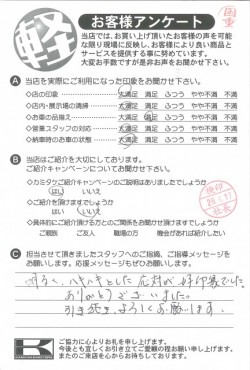 軽
お客様アンケート
当店では、お買い上げ頂いたお客様の声を可能
な限り現場に反映し、お客様により良い商品と
サービスを提供する事に努めています。
大変お手数ですが是非お声をお聞かせ下さい。
A 当店を実際にご利用になった印象をお聞かせ下さい。
◇店の印象 大満足 満足 ふつう やや不満 不満
◇店内・展示場の清掃 大満足 満足 ふつう やや不満 不満
◇お車の品揃え 大満足 満足 ふつう やや不満 不満
◇営業スタッフの対応 大満足 満足 ふつう やや不満 不満
◇納車時のお車の状態 大満足 満足 ふつう やや不満 不満
B 当店はご紹介を大切にしております。
ご紹介キャンペーンについてお聞かせ下さい。
◇カミタケご紹介キャンペーンのご説明はありましたでしょうか
はい いいえ
◇ご紹介を頂けますでしょうか
はい いいえ
◇具体的にご紹介頂ける方とのご関係をお聞かせ頂けますでしょうか
ご親族 ご友人 職場の方 機会があれば紹介したい
C 担当させて頂きましたスタッフへのご指摘、ご指導メッセージを
お願いします。応援メッセージもぜひお願いします。
明るく、ハキハキとした応対が好印象でした。
ありがとうございました。
引き続き、よろしくお願いします。
K
ご協力に心よりお礼を申し上げます。
今後とも宜しくお引き立てご愛顧の程お願い申し上げます。
またのご来店を心からお待ちしております。